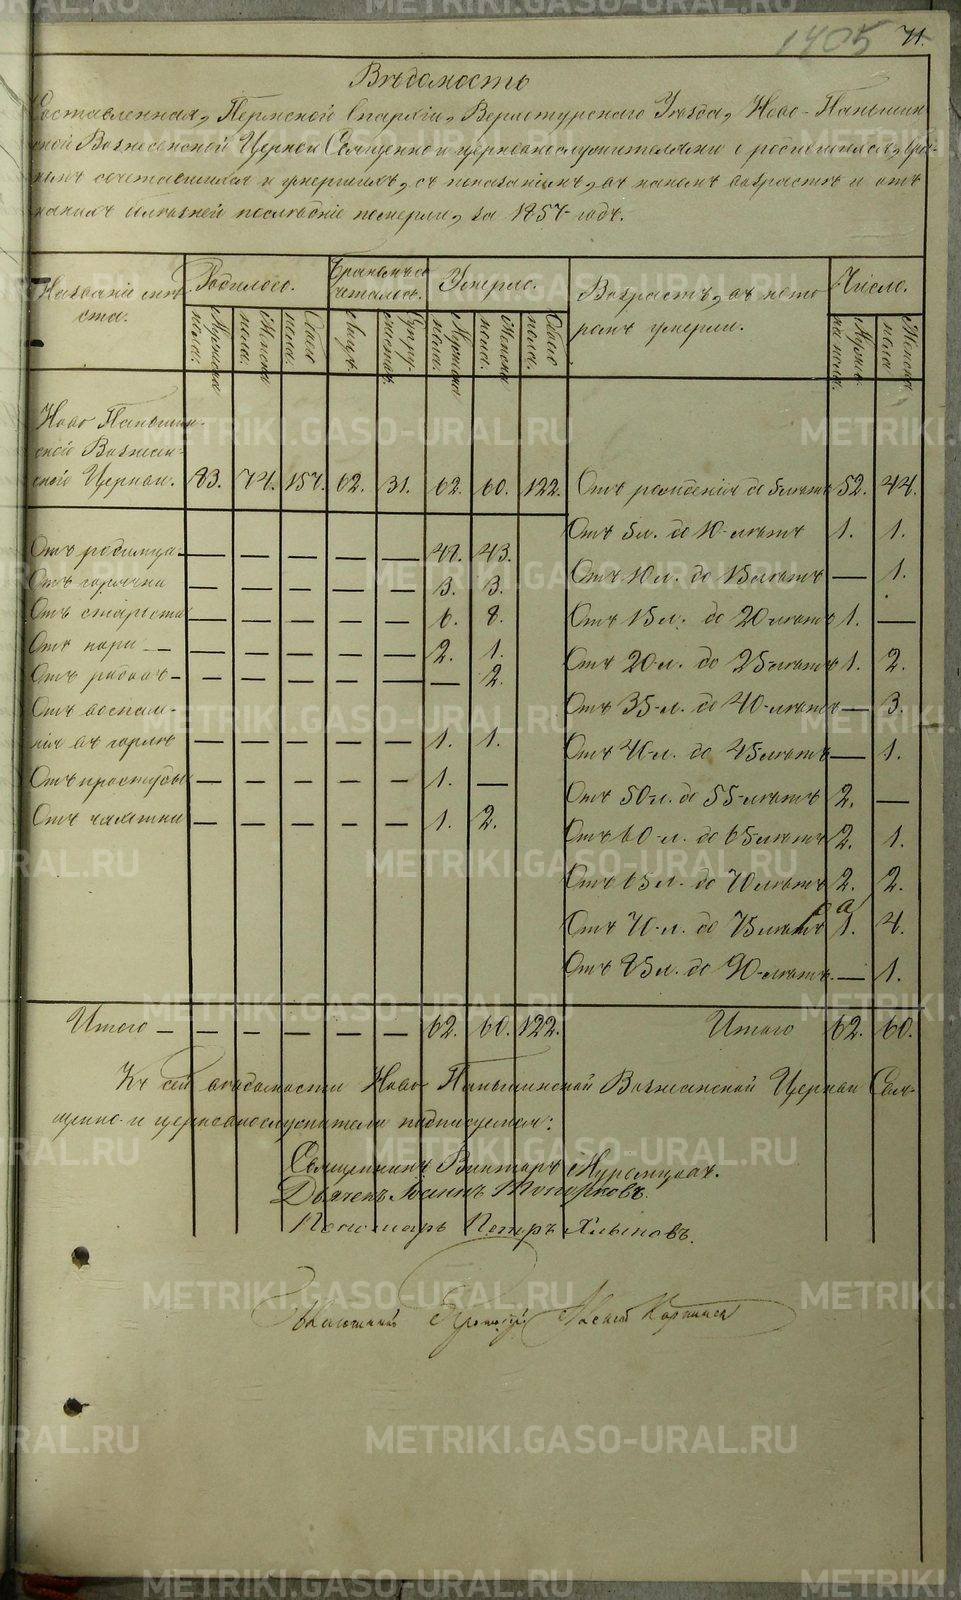 1405 71.
Вѣдомость
Составленная, Пермской Епархіи, Верхотурскаго Уѣзда, Ново-Паньшин-
ской Вознесенской Церкви Священно и церковнослужителями о родившихся, бра-
комъ сочетавшихся и умершихъ, съ показаніемъ, въ какомъ возрастѣ и отъ
какихъ болѣзней послѣдніе померли, за 1857 годъ.
Названіе мѣ-
ста. Родилось. Бракомъ со-
четалось. Умерло. Возрастъ, въ кото-
ромъ умерли. Число.
Мужска пола. Женска пола. Обоего пола. Лицъ. Супружествъ. Мужска пола. Женска пола. Обоего пола. Мужска пола. Женска пола
Ново Паньшин-
ской Вознесен-
ской Церкви. 83. 74. 157. 62. 31. 62. 60. 122. Отъ рожденія до 5 лѣтъ 52. 44.
Отъ 5 л. до 10-лѣтъ 1. 1.
Отъ родимца — — — — — 43.
Отъ 10 л. до 15 лѣтъ — 1.
Отъ горячки — — — — — 3. 3.
Отъ старости — — — — — 6. 8.
Отъ 15 л. до 20-лѣтъ 1. —
Отъ кори — — — — — — 2. 1.
Отъ 20-л. до 25-лѣтъ 1. 2.
Отъ родовъ — — — — — — — 2.
Отъ воспале-
нія въ горлѣ — — — — — 1. 1.
Отъ 35-л. до 40-лѣтъ — 3.
Отъ 40-л. до 45-лѣтъ — 1.
Отъ простуды — — — — — 1. —
Отъ 50-л. до 55-лѣтъ 2. —
Отъ чахотки — — — — — 1. 2.
Отъ 60-л. до 65 лѣтъ 2. 1.
Отъ 65 л. до 70 лѣтъ 2. 2.
Отъ 70-л. до 75 лѣтъ 1. 4.
Отъ 85 л. до 90-лѣтъ. — 1.
Итого — — — — — — 62. 60. 122. Итого 62. 60.
Къ сей вѣдомости Ново Паньшинской Вознесенской Церкви Свя-
щенно- и церковнослужители подписуемся:
Священникъ Викторъ
Дьячекъ Іоаннъ Топорковъ.
Пономарь Петръ Хлыновъ.
METRIKI.GASO-URAL.RU